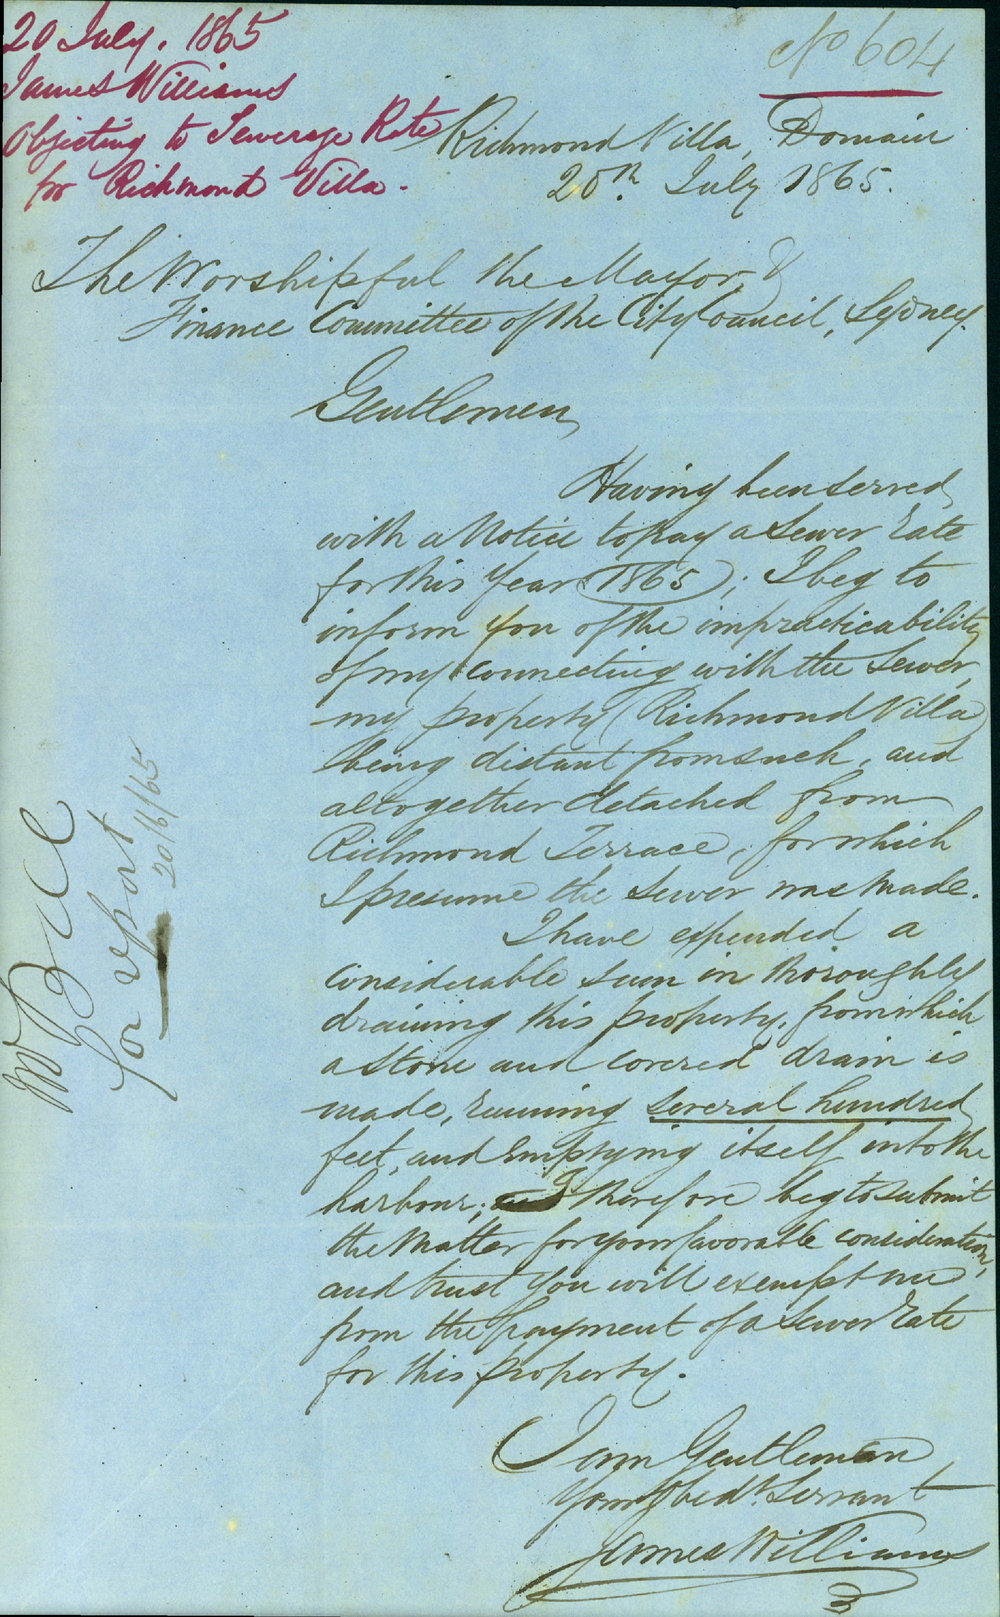 20 July. 1865
James Williams
Objecting to Sewerage Rate
for Richmond Villa.
No 604
Richmond Villa, Domain
20th. July 1865.
The Worshipful the Mayor, &
Finance Committee of the City Council, Sydney.
Gentlemen,
Having been served,
with a Notice to pay a Sewer Rate
for this Year (1865); I beg to
inform you of the impracticability
of my connecting with the Sewer,
my property (Richmond Villa)
being distant from such, and
altogether detached from
Richmond Terrace, for which
I presume the Sewer was made.
I have expended a
considerable sum in thoroughly
draining this property, from which
a Stone and covered drain is
made, running several hundred
feet, and emptying itself into the
harbour; I therefore beg to submit
the Matter for your favorable consideration,
and trust you will exempt me
from the payment of a Sewer Rate
for this property.
I am Gentlemen
Your Obedt. Servant
James Williams
Mr Bell
for report
20/6/65